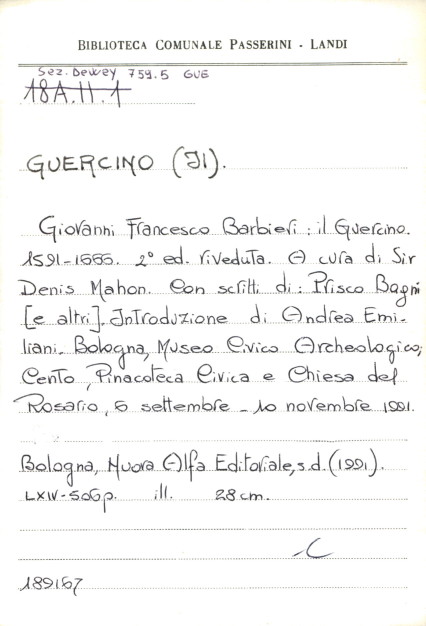 BIBLIOTECA COMUNALE PASSERINI - LANDI
Sez. Dewey 759.5 GUE
18A.II.1
GUERCINO (Il).
Giovanni Francesco Barbieri : il Guercino.
1591-1666. 2º ed. riveduta. A cura di Sir
Denis Mahon. Con scritti di : Prisco Bagni
[e altri]. Introduzione di Andrea Emi-
liani. Bologna, Museo Civico Archeologico;
Cento, Pinacoteca Civica e Chiesa del
Rosario, 6 settembre - 10 novembre 1991.
Bologna, Nuova Alfa Editoriale, s.d. (1991).
LXIV-506 p. ill. 28 cm.
189167